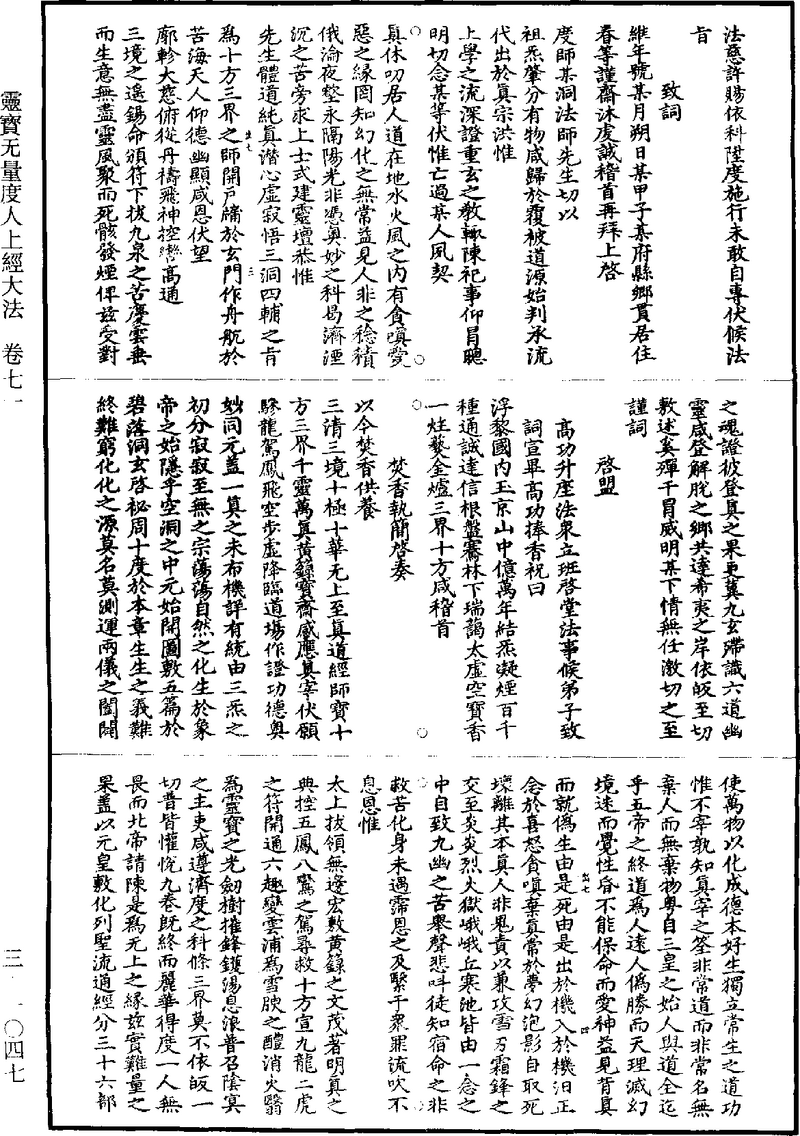 法慈許賜依科陞度施行未敢自專伏候法
旨
致詞
維年號某月朔日某甲子某府縣鄉貫居住
春等謹齋沐虔誠稽首再拜上啓
度師某洞法師先生切以
祖炁肇分有物咸歸於覆被道源始判承流
代出於真宗洪惟
上學之流深證重玄之教輒陳祀事仰冒聽
明切念某等伏惟亡過某人夙契
真休叨居人道在地水火風之內有貪嗔愛
惡之緣罔知幻化之無常益見人非之稔積
俄淪夜壑永隔陽光非憑奧妙之科曷濟湮
沉之苦旁求上士式建靈壇恭惟
先生體道純真潛心虛寂悟三洞四輔之旨
為十方三界之師開戶牖於玄門作舟航於
苦海天人仰德幽顯咸恩伏望
廓軫大慈俯從丹禱飛神控轡高通
三境之遙錫命頒符下拔九泉之苦慶雲垂
而生意無盡靈風聚而死骸發煙俾茲受對
之魂證彼登真之果更冀九玄滯識六道幽
靈咸登解脫之鄉共達希夷之岸依皈至切
敷述奚殫干冒威明某下情無任激切之至
謹詞
啓盟
高功升座法衆立班啓堂法事候弟子致
詞宣畢高功捧香祝曰
浮黎國內玉京山中億萬年結炁凝煙百千
種通誠達信根盤騫林下瑞靄太虛空寶香
一炷爇金爐三界十方咸稽首
焚香執簡啓奏
以今焚香供養
三清三境十極十華无上至真道經師寶十
方三界千靈萬真黃籙寶齋感應真宰伏願
驂龍駕鳳飛空步虛降臨道場作證功德奧
妙同元蓋一真之未布機詳有統由三炁之
初分寂寂至無之宗蕩蕩自然之化生於象
帝之始隱乎空洞之中元始開圖敷五篇於
碧落洞玄啓祕周十度於本章生生之義難
終難窮化化之源莫名莫測運兩儀之闔闢
使萬物以化成德本好生獨立常生之道功
惟不宰孰知真宰之筌非常道而非常名無
棄人而無棄物粵自三皇之始人與道全迄
乎五帝之終道為人遠人偽勝而天理滅幻
境迷而覺性昏不能保命而愛神益見背真
而就偽生由是死由是出於機入於機汨正
念於喜怒貪嗔棄真常於夢幻泡影自取死
壞離其本真人非鬼責以兼攻雪刃霜鋒之
交至炎炎烈火獄峨峨丘寒池皆由一念之
中自致九幽之苦舉聲悲叫徒知宿命之非
救苦化身未遇霈恩之及繫于衆罪流吹不
息恩惟
太上拔領無邊宏敷黃籙之文茂著明真之
典控五鳳八鸞之駕尋救十方宣九龍二虎
之符開通六趣變雲浦為雪腴之醴消火翳
為靈寶之光劒樹摧鋒鑊湯息浪普召陰冥
之主吏咸遵濟度之科條三界莫不依皈一
切普皆懽悅九卷旣終而麗華得度一人無
畏而北帝請陳是為无上之緣玆實難量之
果盖以元皇敷化列聖流通經分三十六部
靈寶无量度人上經大法　卷七一
三一　一〇四七